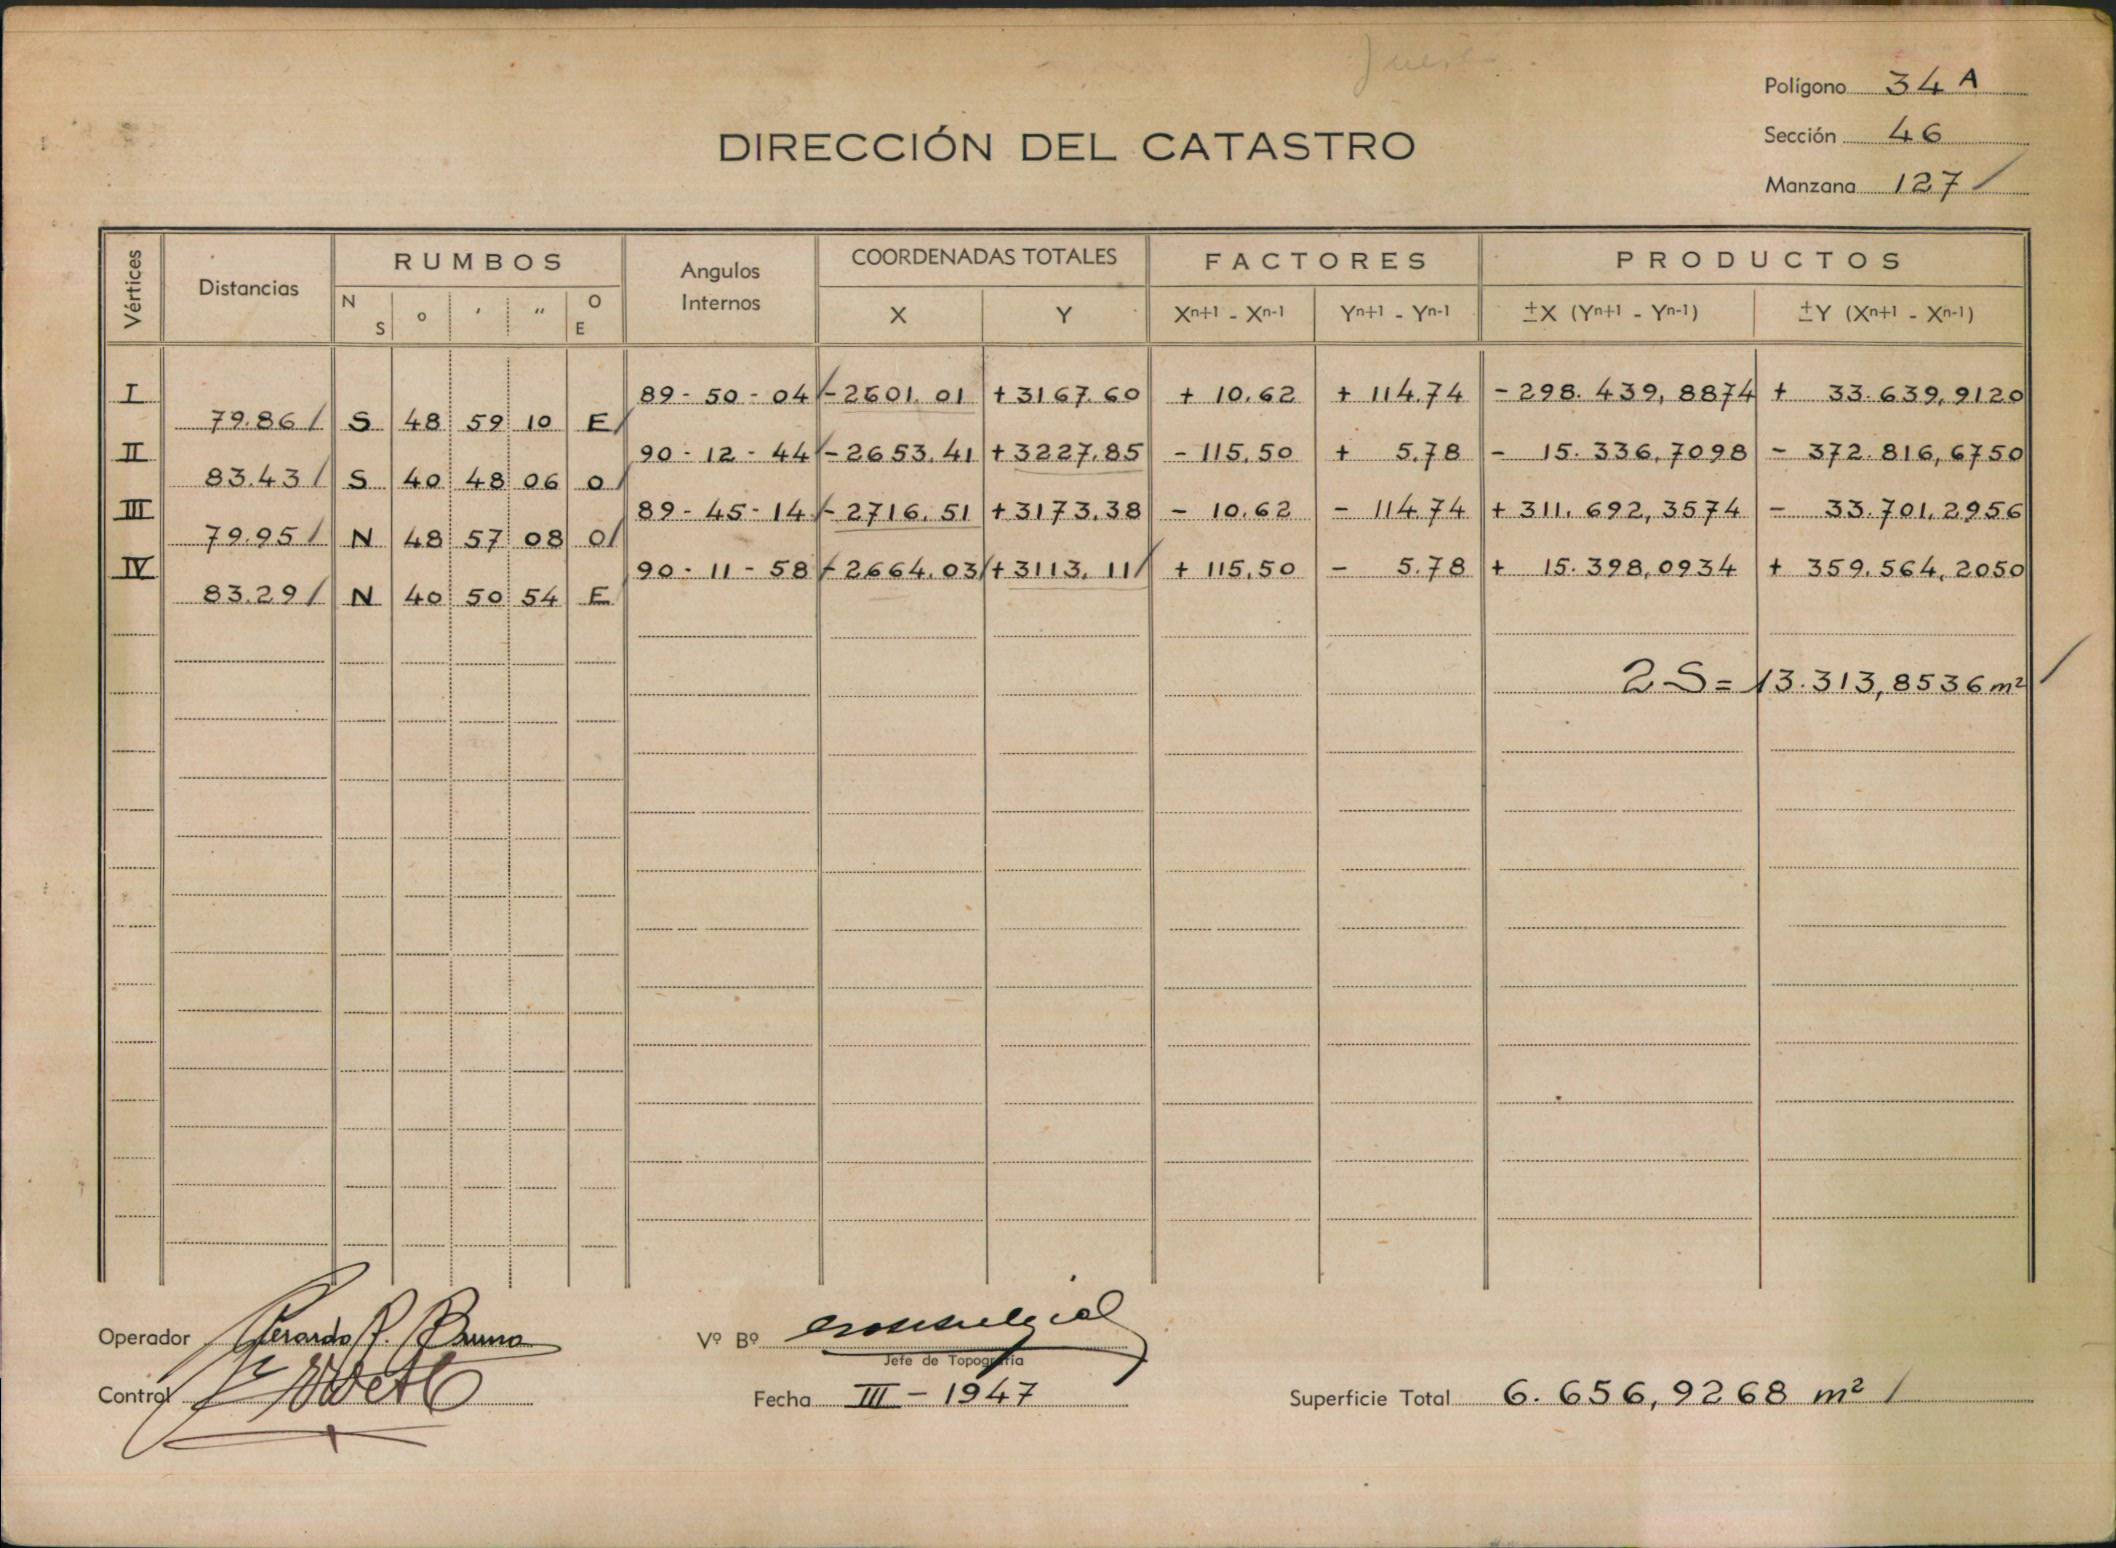 Polígono 34 A
DIRECCIÓN DEL CATASTRO
Sección 46
Manzana 127 /
Vértices Distancias RUMBOS Angulos Internos COORDENADAS TOTALES FACTORES PRODUCTOS
N S o ′ ″ O E X Y Xn+1 - Xn-1 Yn+1 - Yn-1 ±X (Yn+1 - Yn-1) ±Y (Xn+1 - Xn-1)
I 89 - 50 - 04 / - 2601.01 + 3167.60 + 10.62 + 114.74 - 298.439,8874 + 33.639,9120
79.86 / S 48 59 10 E /
II 90 - 12 - 44 / - 2653.41 + 3227.85 - 115.50 + 5.78 - 15.336,7098 - 372.816,6750
83.43 / S 40 48 06 O /
III 89 - 45 - 14 / - 2716.51 + 3173.38 - 10.62 - 114.74 + 311.692,3574 - 33.701,2956
79.95 / N 48 57 08 O /
IV 90 - 11 - 58 / - 2664.03 / + 3113.11 / + 115.50 - 5.78 + 15.398,0934 + 359.564,2050
83.29 / N 40 50 54 E
2 S = 13.313,8536 m² /
Operador Gerardo P. Bruno Vº Bº
Jefe de Topografía
Control Fecha III - 1947 Superficie Total 6.656,9268 m² /